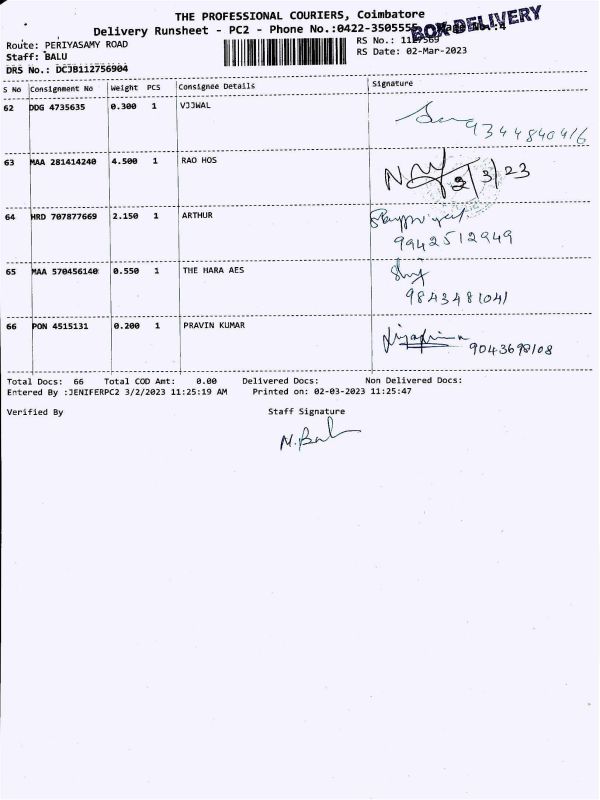 THE PROFESSIONAL COURIERS, Coimbatore
Delivery Runsheet - PC2 - Phone No.:0422-3505555,
BOX DELIVERY
Route: PERIYASAMY ROAD
Staff: BALU
DRS No.: DCJB112756904
RS No.: 1127569
RS Date: 02-Mar-2023
S No Consignment No Weight PCS Consignee Details Signature
62 DDG 4735635 0.300 1 VJJWAL
9344840416
63 MAA 281414240 4.500 1 RAO HOS
2/3/23
64 HRD 707877669 2.150 1 ARTHUR
9942512949
65 MAA 570456140 0.550 1 THE HARA AES
9843481041
66 PON 4515131 0.200 1 PRAVIN KUMAR
9043698108
Total Docs: 66 Total COD Amt: 0.00 Delivered Docs: Non Delivered Docs:
Entered By :JENIFERPC2 3/2/2023 11:25:19 AM Printed on: 02-03-2023 11:25:47
Verified By Staff Signature
N. Bal